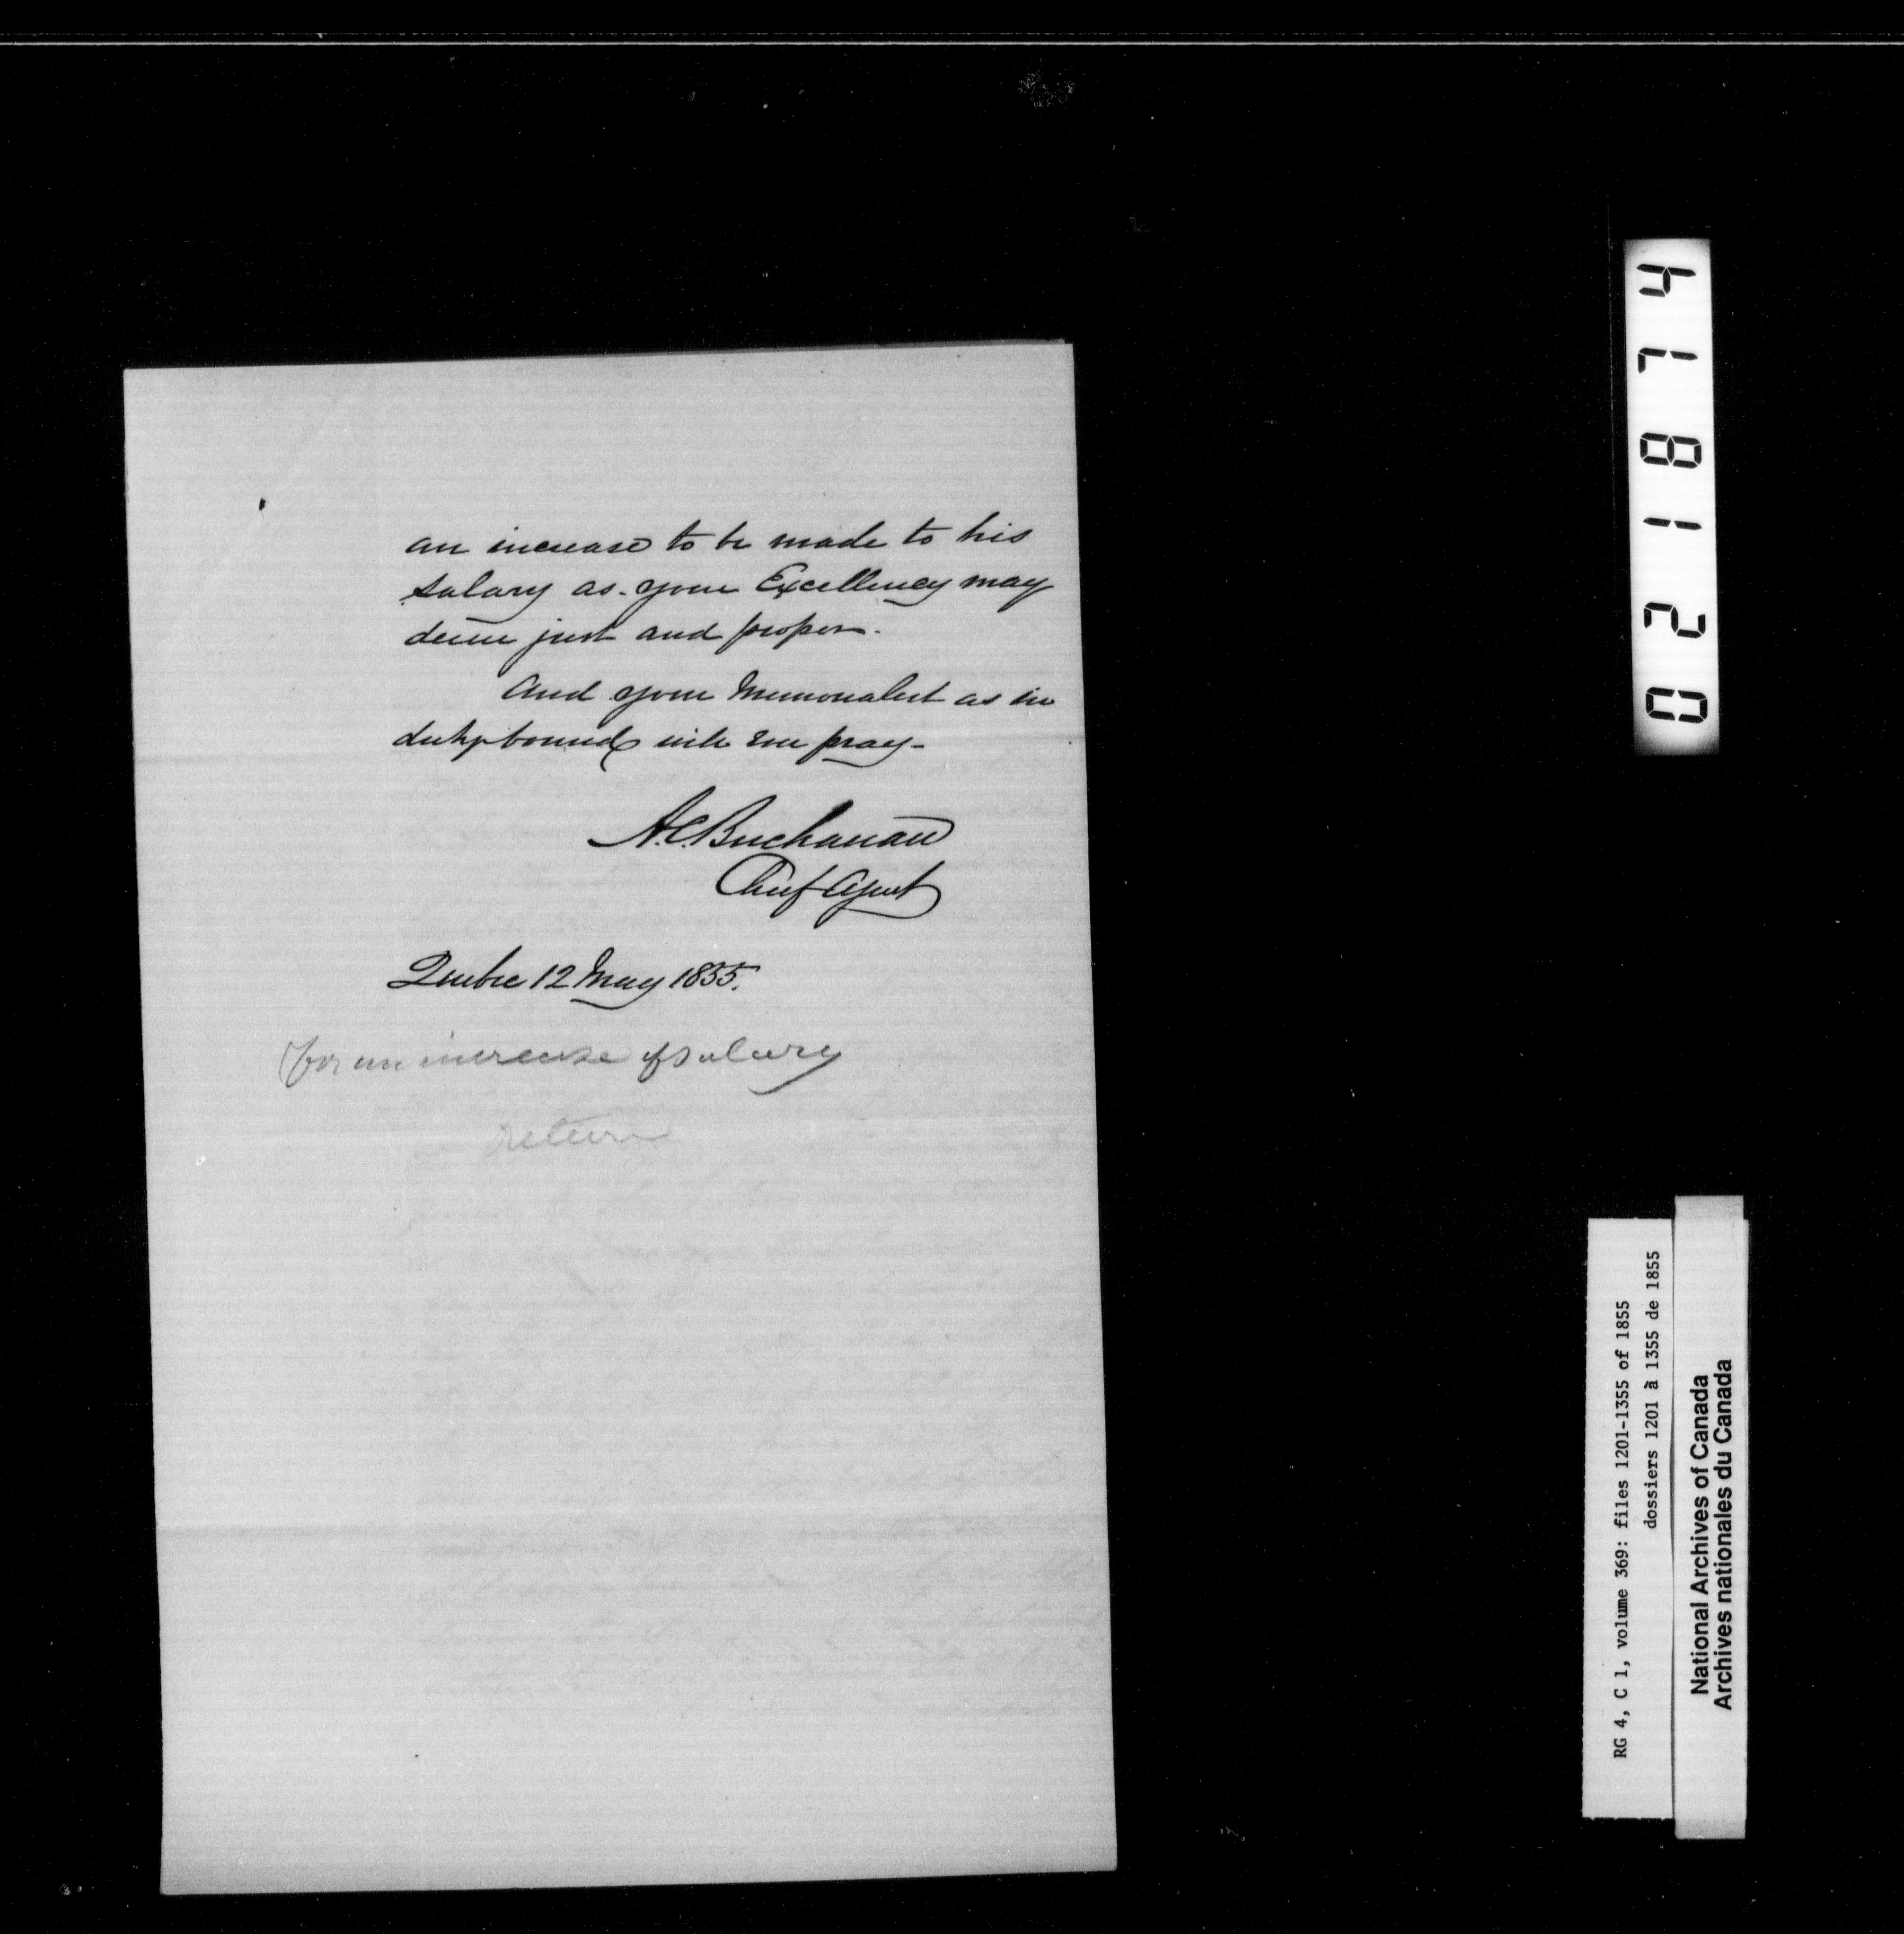 an increase to be made to his
salary as your Excellency may
deem just and proper.
And your Memorialist as in
duty bound will ever pray-
A.C. Buchanan
Chief Agent
Quebec 12 May 1855.
for an increase of salary
return
021874
RG 4, C 1, volume 369: files 1201-1355 of 1855
dossiers 1201 à 1355 de 1855
National Archives of Canada
Archives nationales du Canada